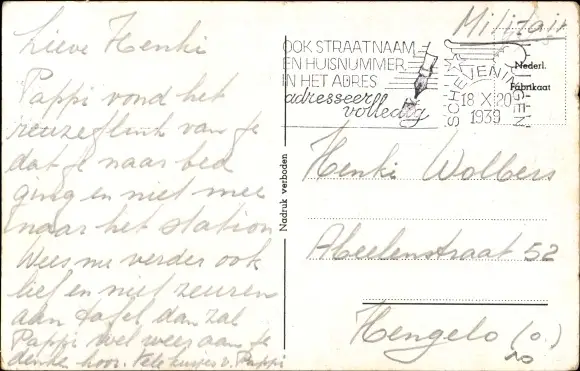 Lieve Henki
Pappi vond het
reuzeflink van je
dat je naar bed
ging en niet mee
naar het station
Wees nu verder ook
lief en niet zeuren
aan tafel dan zal
Pappi wel weer aan je
denken hoor. Vele kusjes v. Pappi
Nadruk verboden
OOK STRAATNAAM
EN HUISNUMMER
IN HET ADRES
adresseer
volledig
SCHEVENINGEN
18 X 20
1939
Militair
Nederl.
Fabrikaat
Henki Wolbers
Abeelenstraat 52
Hengelo (O.)